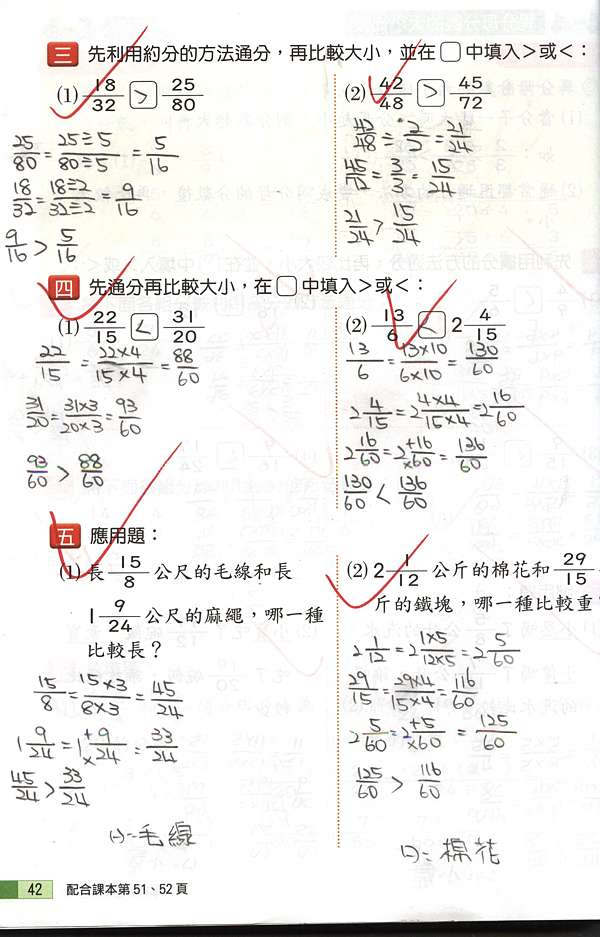 三 先利用約分的方法通分，再比較大小，並在□中填入＞或＜：
(1) 18/32 > 25/80
25/80 = 25÷5/80÷5 = 5/16
18/32 = 18÷2/32÷2 = 9/16
9/16 > 5/16
(2) 42/48 > 45/72
21/24
15/24
21/24 > 15/24
四 先通分再比較大小，在□中填入＞或＜：
(1) 22/15 < 31/20
22/15 = 22×4/15×4 = 88/60
31/20 = 31×3/20×3 = 93/60
93/60 > 88/60
(2) 13/6 < 2 4/15
13/6 = 13×10/6×10 = 130/60
2 4/15 = 2 4×4/15×4 = 2 16/60
2 16/60 = 2 +16/×60 = 136/60
130/60 < 136/60
五 應用題：
(1) 長 15/8 公尺的毛線和長
1 9/24 公尺的麻繩，哪一種
比較長？
15/8 = 15×3/8×3 = 45/24
1 9/24 = 1 +9/×24 = 33/24
45/24 > 33/24
A:毛線
(2) 2 1/12 公斤的棉花和 29/15
斤的鐵塊，哪一種比較重
2 1/12 = 2 1×5/12×5 = 2 5/60
29/15 = 29×4/15×4 = 116/60
2 5/60 = 2 +5/×60 = 125/60
125/60 > 116/60
棉花
42 配合課本第51、52頁